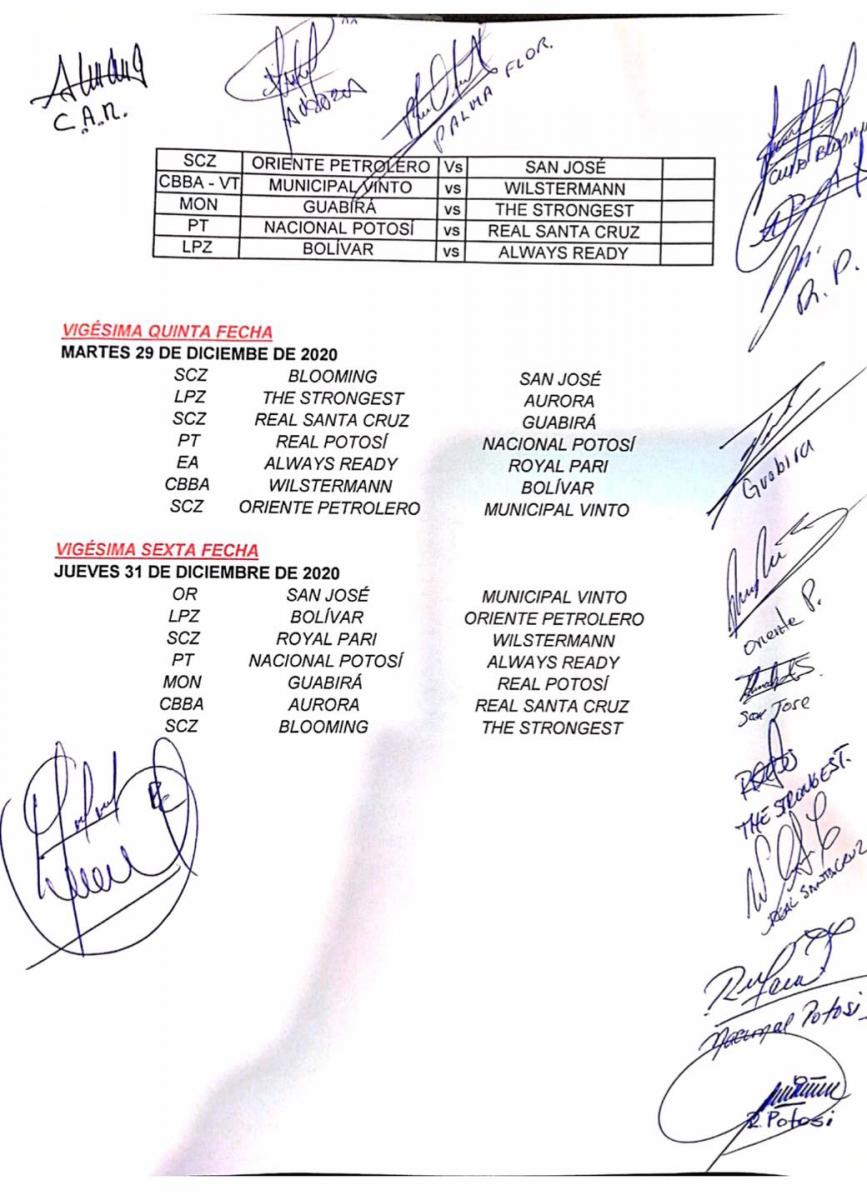 C.A.R.
AURORA
PALMA FLOR.
SCZ ORIENTE PETROLERO Vs SAN JOSÉ
CBBA - VT MUNICIPAL VINTO vs WILSTERMANN
MON GUABIRÁ vs THE STRONGEST
PT NACIONAL POTOSÍ vs REAL SANTA CRUZ
LPZ BOLÍVAR vs ALWAYS READY
CLUB BLOOMING
R. P.
VIGÉSIMA QUINTA FECHA
MARTES 29 DE DICIEMBE DE 2020
SCZ BLOOMING SAN JOSÉ
LPZ THE STRONGEST AURORA
SCZ REAL SANTA CRUZ GUABIRÁ
PT REAL POTOSÍ NACIONAL POTOSÍ
EA ALWAYS READY ROYAL PARI
CBBA WILSTERMANN BOLÍVAR
SCZ ORIENTE PETROLERO MUNICIPAL VINTO
Guabira
VIGÉSIMA SEXTA FECHA
JUEVES 31 DE DICIEMBRE DE 2020
OR SAN JOSÉ MUNICIPAL VINTO
LPZ BOLÍVAR ORIENTE PETROLERO
SCZ ROYAL PARI WILSTERMANN
PT NACIONAL POTOSÍ ALWAYS READY
MON GUABIRÁ REAL POTOSÍ
CBBA AURORA REAL SANTA CRUZ
SCZ BLOOMING THE STRONGEST
Oriente P.
San Jose
THE STRONGEST.
REAL SANTA CRUZ
Nacional Potosi
R. Potosi